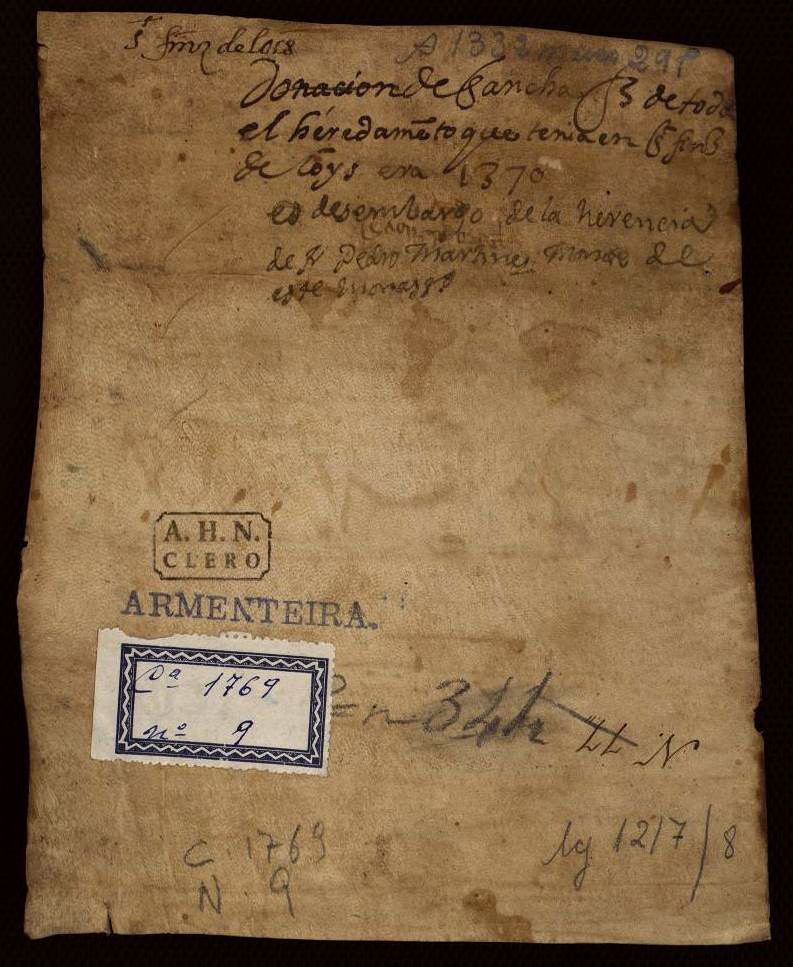 de lois
A 1332 29
Donacion de Sancha de todo
el heredamẽto que tenia en
de lõys era 1370
es desembargo de la herencia
de Pedro Martines de
este
A. H. N.
CLERO
ARMENTEIRA.
Cª 1769
nº 9
n 344
N
C. 1769
N. 9
lg 1217/8